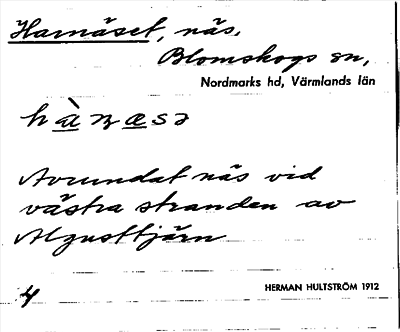 Harnäset, näs.
Blomskogs sn,
Nordmarks hd, Värmlands län
hànæsə
Avrundat näs vid
västra stranden av
Algusttjärn
4
HERMAN HULTSTRÖM 1912